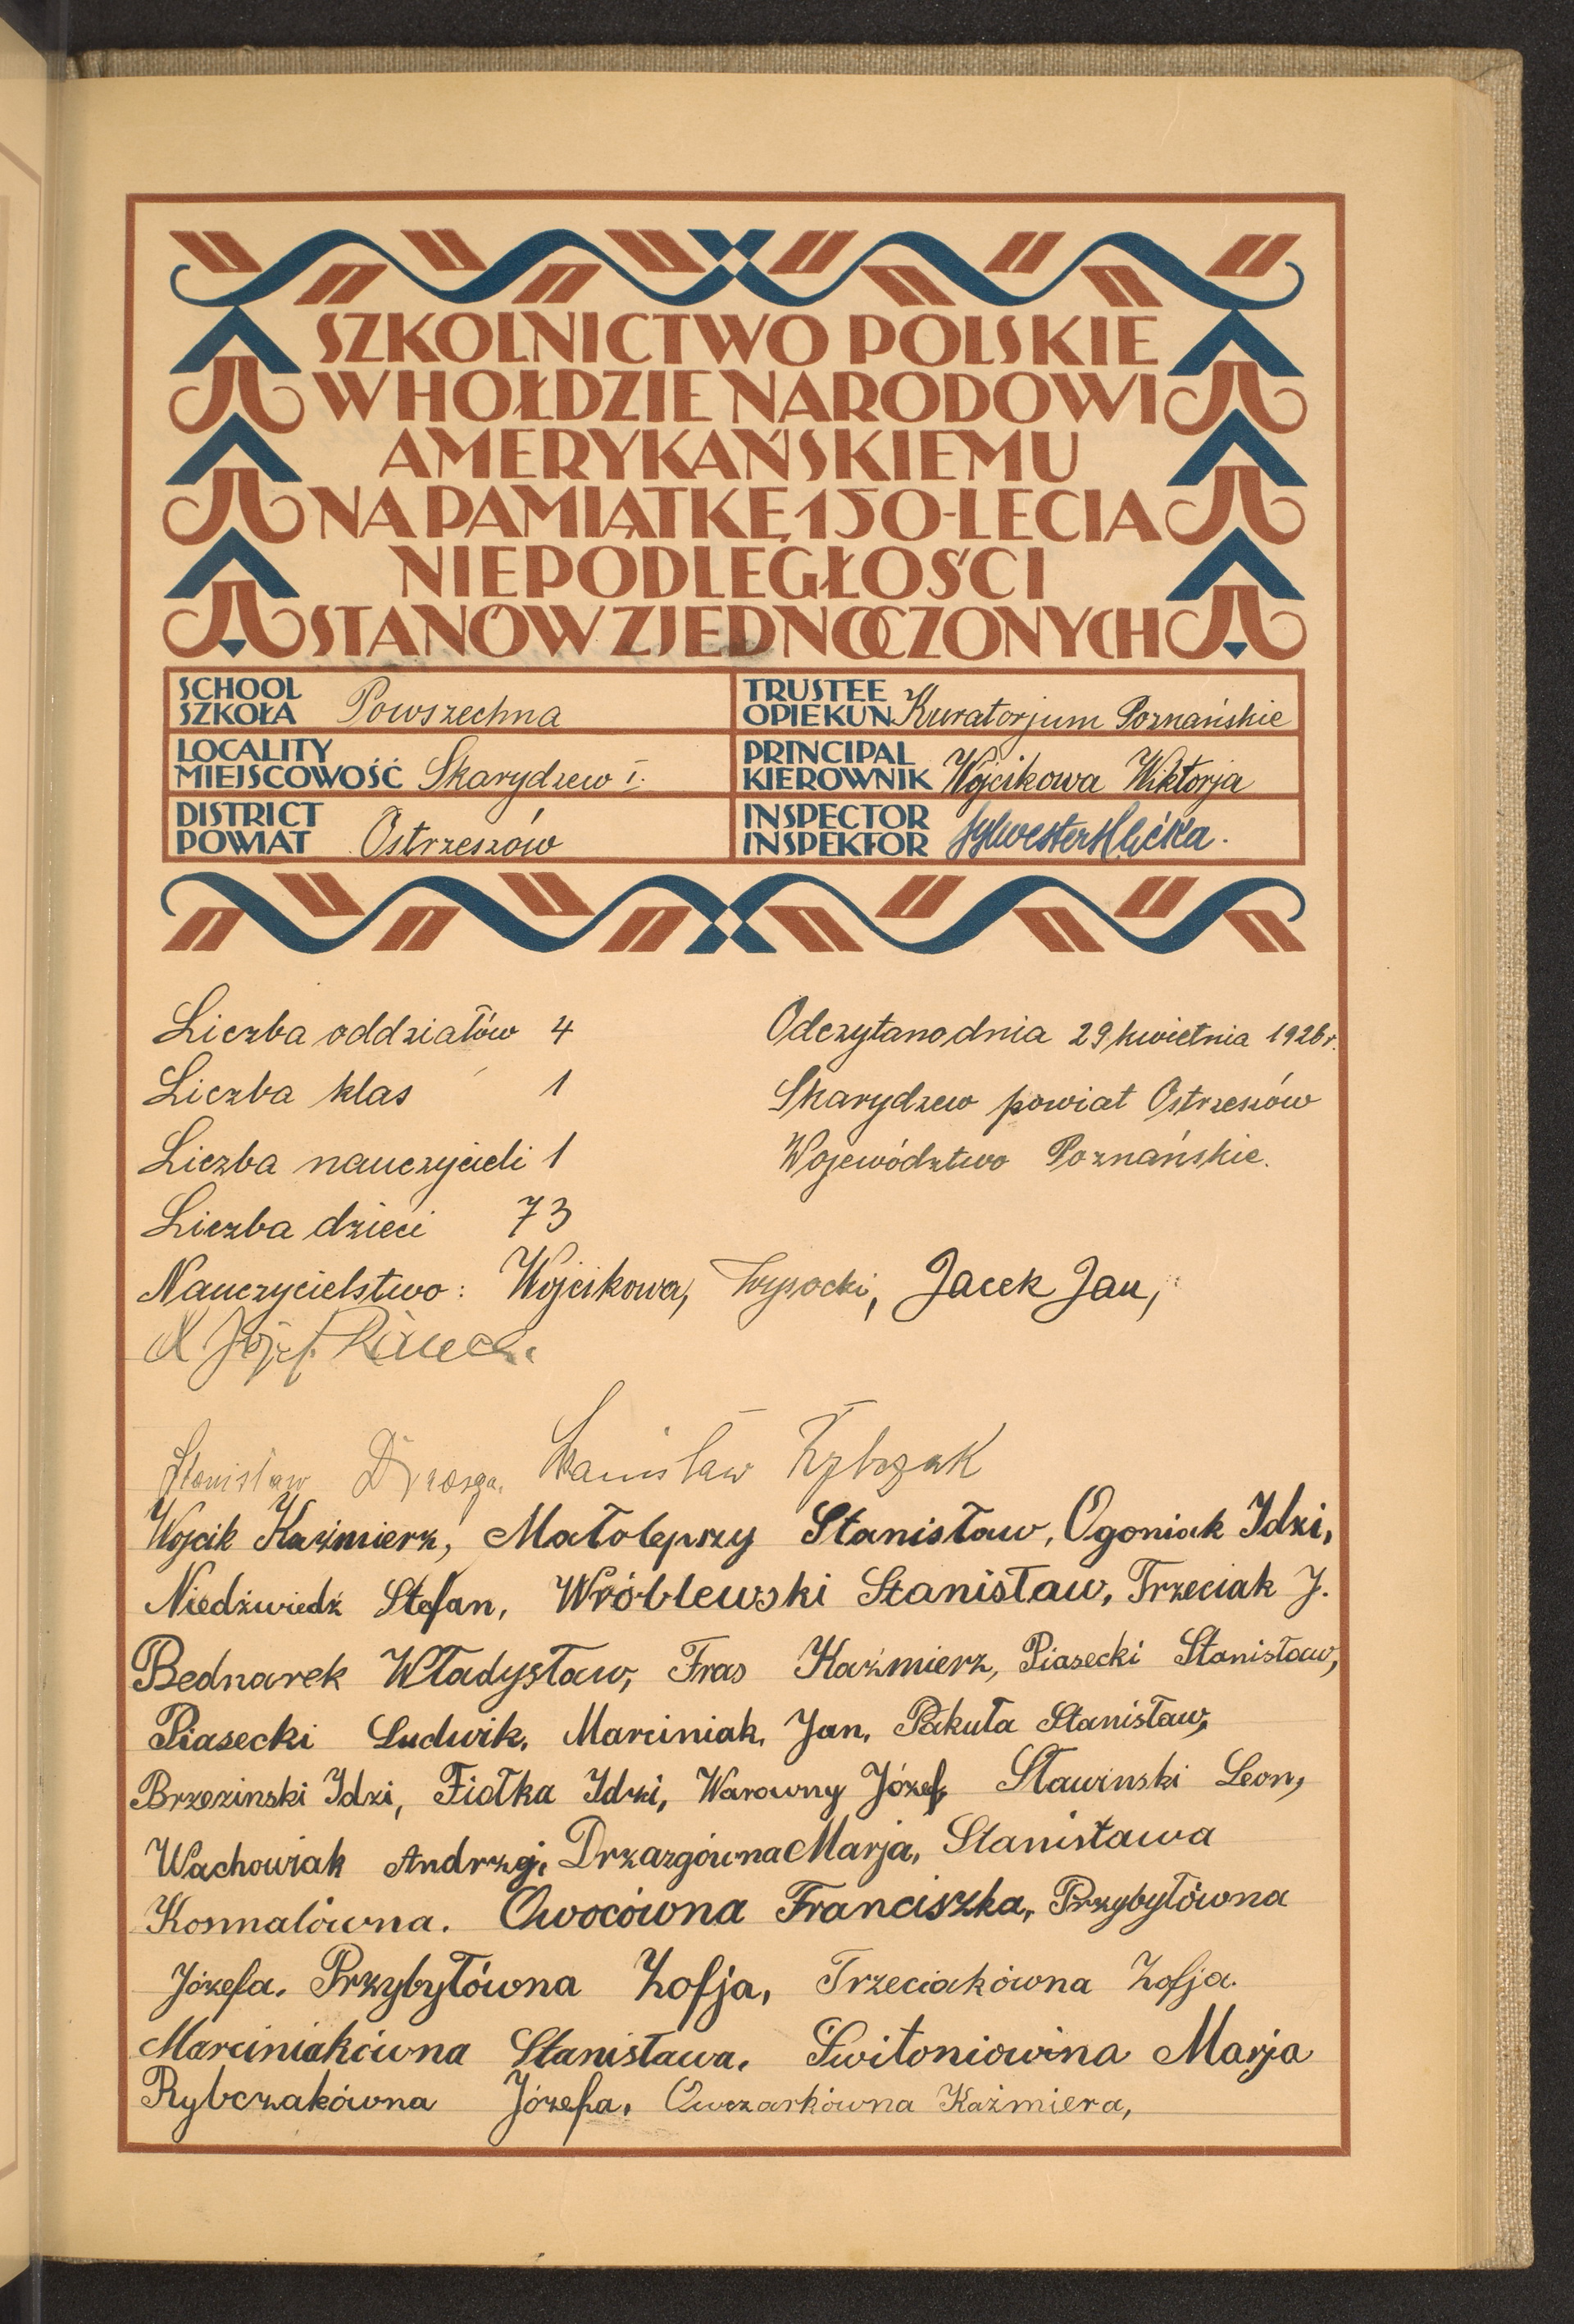 SZKOLNICTWO POLSKIE
W HOŁDZIE NARODOWI
AMERYKAŃSKIEMU
NA PAMIĄTKĘ 150-LECIA
NIEPODLEGŁOŚCI
STANÓW ZJEDNOCZONYCH
SCHOOL
SZKOŁA Powszechna
TRUSTEE
OPIEKUN Kuratorjum Poznańskie
LOCALITY
MIEJSCOWOŚĆ Skarydzew I.
PRINCIPAL
KIEROWNIK Wojcikowa Wiktorja
DISTRICT
POWIAT Ostrzeszów
INSPECTOR
INSPEKTOR Sylwester
Liczba oddziałów 4
Odczytano dnia 29 kwietnia 1926 r.
Liczba klas 1
Skarydzew powiat Ostrzeszów
Liczba nauczycieli 1
Województwo Poznańskie.
Liczba dzieci 73
Nauczycielstwo: Wojcikowa, Wysocki, Jacek Jan,
Józef
Stanisław Stanisław
Wojcik Kaźmierz, Małolepszy Stanisław, Ogoniak Idzi,
Niedźwiedź Stefan, Wróblewski Stanisław, Trzeciak J.
Bednarek Władysław, Fras Kaźmierz, Piasecki Stanisław,
Piasecki Ludwik, Marciniak, Jan, Pakuła Stanisław,
Brzezinski Idzi, Fiołka Idzi, Warowny Józef, Sławinski Leon,
Wachowiak Andrzej, Drzazgówna Marja, Stanisława
Kosmalówna. Owocówna Franciszka, Przybyłówna
Józefa. Przybyłówna Zofja, Trzeciakówna Zofja.
Marciniakówna Stanisława, Świtoniowina Marja
Rybczakówna Józefa, Owczarkówna Kaźmiera,